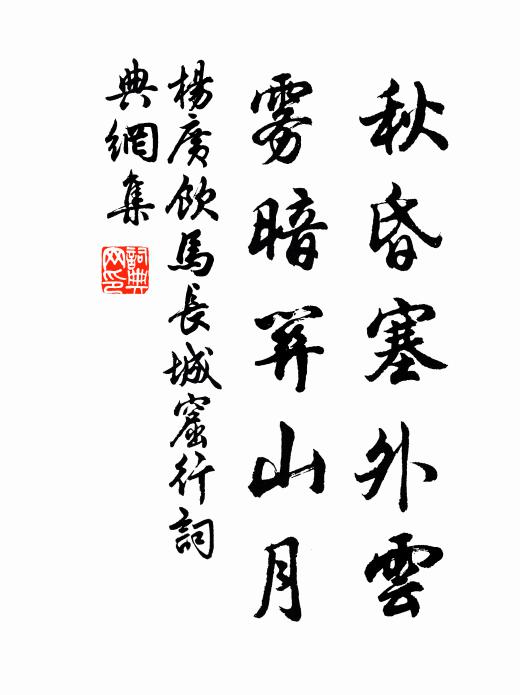 秋昏塞外雲
霧暗關山月
楊廣飲馬長城窟行詞
典網集
詞典
网印